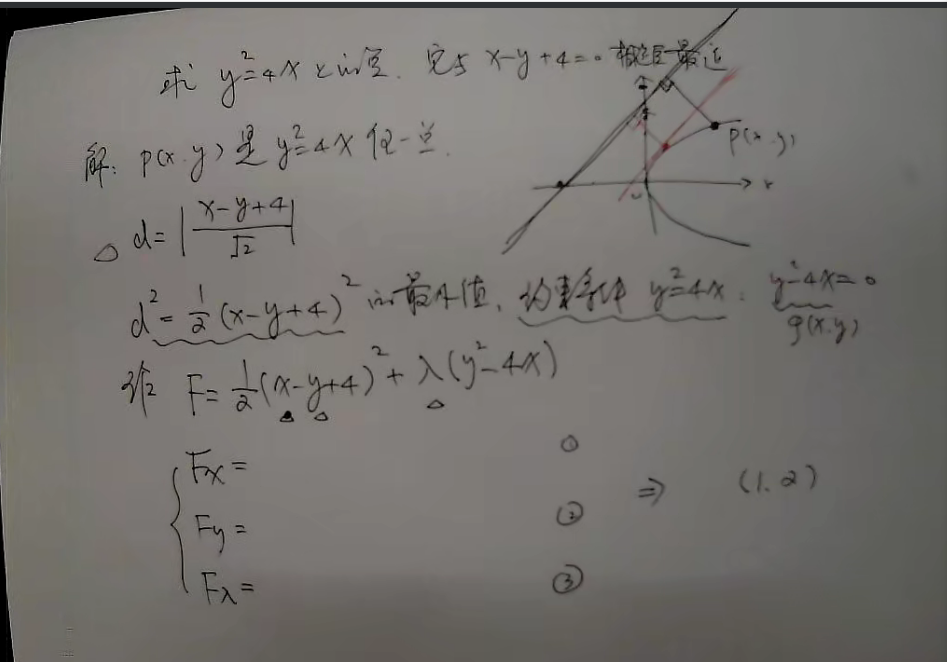 求 y²=4x 上的点. 它与 x-y+4=0 相距最近
解: p(x.y) 是 y²=4x 任一点.
p(x.y)
x
△ d=|x-y+4/√2|
d²=1/2(x-y+4)² 的最小值, 约束条件 y²=4x. y²-4x=0
g(x.y)
F=1/2(x-y+4)²+λ(y²-4x)
Fx= ①
Fy= ② ⇒ (1.2)
Fλ= ③